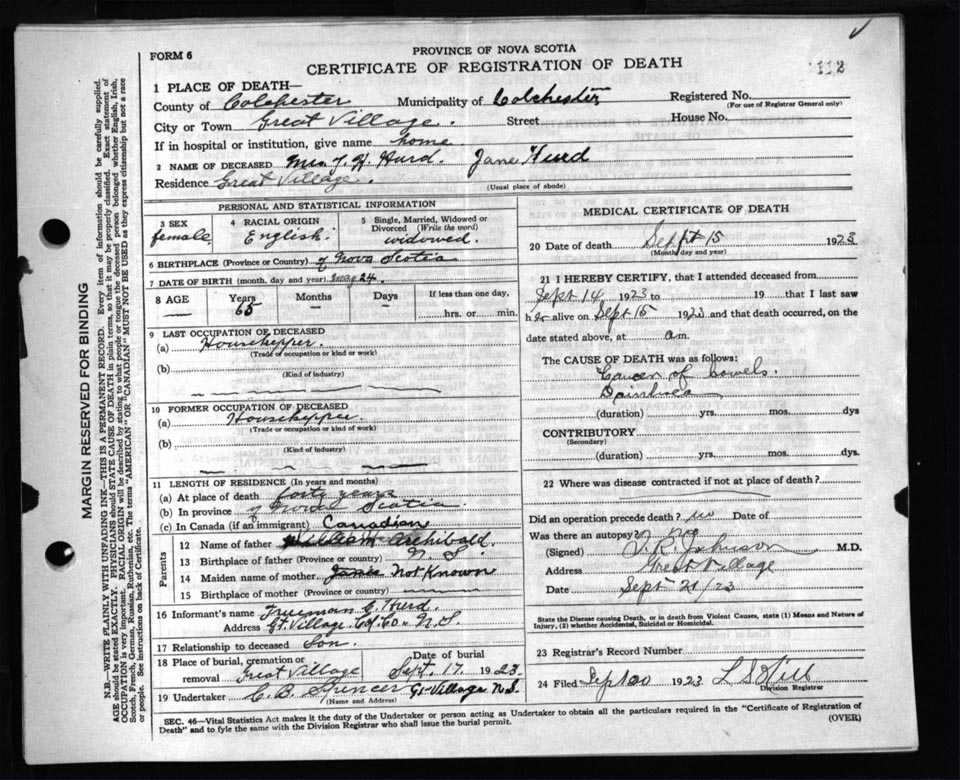 FORM 6
PROVINCE OF NOVA SCOTIA
CERTIFICATE OF REGISTRATION OF DEATH
112
1 PLACE OF DEATH—
County of Colchester Municipality of Colchester Registered No.
(For use of Registrar General only)
City or Town Great Village. Street House No.
If in hospital or institution, give name home
2 NAME OF DECEASED Mrs J. H. Hurd. Jane Hurd
Residence Great Village.
(Usual place of abode)
PERSONAL AND STATISTICAL INFORMATION
3 SEX female
4 RACIAL ORIGIN English
5 Single, Married, Widowed or Divorced (Write the word) widowed.
6 BIRTHPLACE (Province or Country) of Nova Scotia
7 DATE OF BIRTH (month, day and year) 24.
8 AGE Years 65 Months — Days — If less than one day, hrs. or min.
9 LAST OCCUPATION OF DECEASED
(a) Househepper.
(Trade of occupation or kind or work)
(b)
(Kind of industry)
10 FORMER OCCUPATION OF DECEASED
(a) Househepper.
(Trade or occupation or kind of work)
(b)
(Kind of industry)
11 LENGTH OF RESIDENCE (In years and months)
(a) At place of death forty years
(b) In province of Nova Scotia.
(c) In Canada (if an immigrant) Canadian
Parents
12 Name of father William Archibald.
13 Birthplace of father (Province or country) N. S.
14 Maiden name of mother Not Known
15 Birthplace of mother (Province or country)
16 Informant's name Freeman C. Hurd.
Address Gt. Village Col. Co. N. S.
17 Relationship to deceased Son.
18 Place of burial, cremation or removal Great Village Date of burial Sept. 17. 1923.
19 Undertaker C. B. Spencer Gt. Village N. S.
(Name and Address)
MEDICAL CERTIFICATE OF DEATH
20 Date of death Sept 15 1923
(Month, day and year)
21 I HEREBY CERTIFY, that I attended deceased from
Sept 14, 1923 to 19 that I last saw
her alive on Sept 15 1923, and that death occurred, on
date stated above, at a.m.
The CAUSE OF DEATH was as follows:
Cancer of bowels.
(duration) yrs. mos. dys
CONTRIBUTORY
(Secondary)
(duration) yrs. mos. dys.
22 Where was disease contracted if not at place of death?
Did an operation precede death? no Date of
Was there an autopsy? no
(Signed) Johnson M.D.
Address Great Village
Date Sept 21/23
State the Disease causing Death, or in death from Violent Causes, state (1) Means and Nature of
Injury, (2) whether Accidental, Suicidal or Homicidal.
23 Registrar's Record Number
24 Filed Sept 20 1923 L S Hill
Division Registrar
SEC. 46—Vital Statistics Act makes it the duty of the Undertaker or person acting as Undertaker to obtain all the particulars required in the "Certificate of Registration of
Death" and to fyle the same with the Division Registrar who shall issue the burial permit.
(OVER)
MARGIN RESERVED FOR BINDING
N.B.—WRITE PLAINLY WITH UNFADING INK—THIS IS A PERMANENT RECORD. Every item of information should be carefully supplied.
AGE should be stated EXACTLY. PHYSICIANS should STATE CAUSE OF DEATH in plain terms, so that it may be properly classified. Exact statement of
OCCUPATION is very important. RACIAL ORIGIN will be described by stating to what people or tongue the deceased person belonged whether English, Irish,
Scotch, French, German, Russian, Ruthenian, etc. The terms "AMERICAN" OR "CANADIAN" MUST NOT BE USED as they express citizenship but not a race
or people. See instructions on back of Certificate.